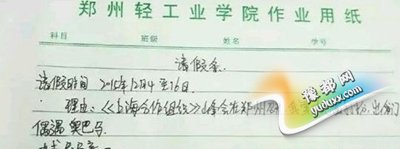 郑州轻工业学院作业用纸
科目 班级 姓名 学号
请假条
请假时间 2015年12月4至16日.
理由:《上海合作组织》峰会在郑州
出门
偶遇 奥巴马
豫都网
yuduxx.com